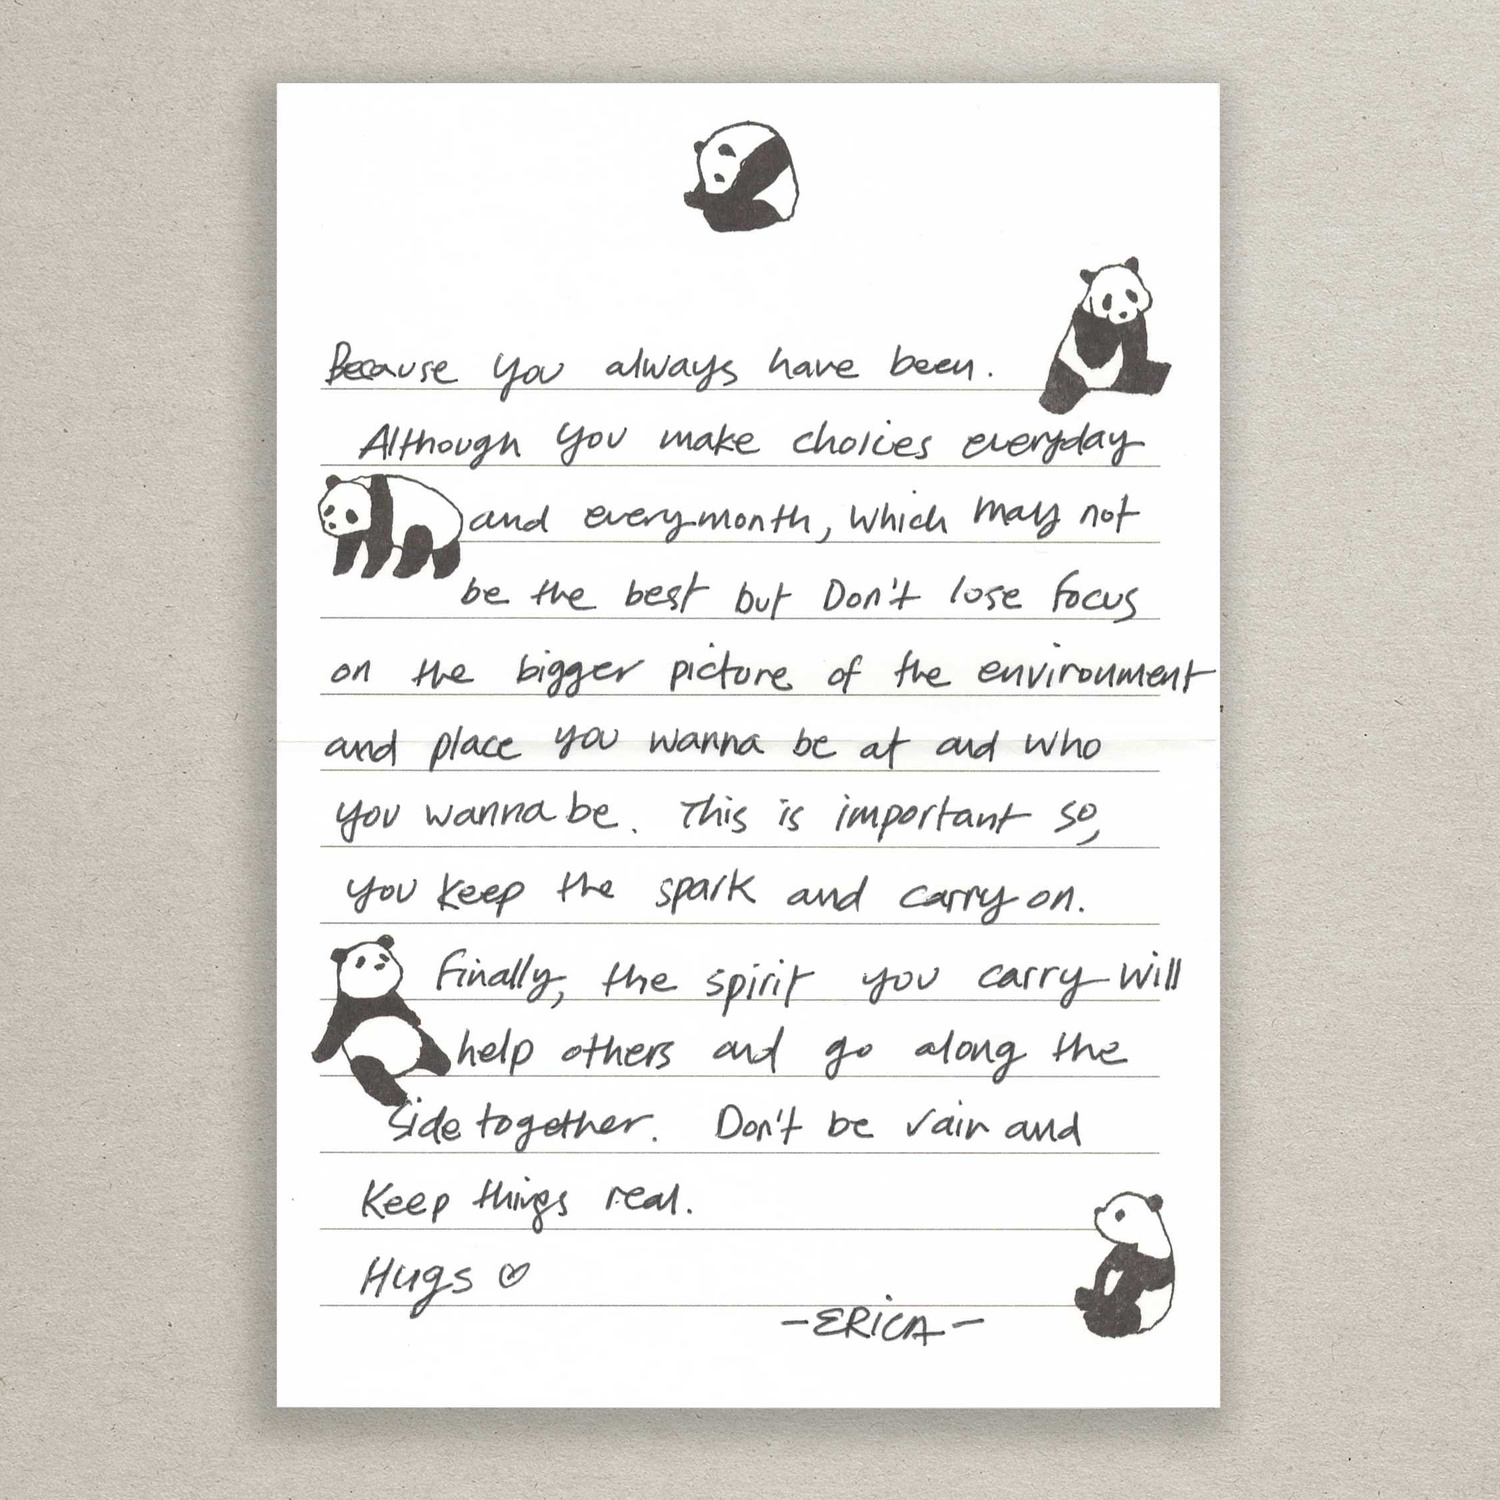 Because you always have been.
Although you make choices everyday
and everymonth, which may not
be the best but Don't lose focus
on the bigger picture of the environment
and place you wanna be at and who
you wanna be. This is important so,
you keep the spark and carry on.
Finally, the spirit you carry will
help others and go along the
side together. Don't be vain and
keep things real.
Hugs ♡
-ERiCA-